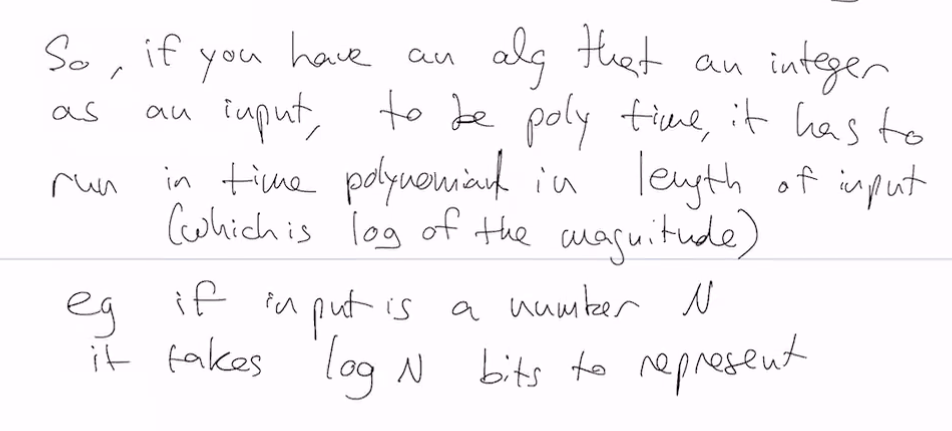 So, if you have an alg that an integer
as an input, to be poly time, it has to
run in time polynomial in length of input
(which is log of the magnitude)
eg if input is a number N
it takes log N bits to represent